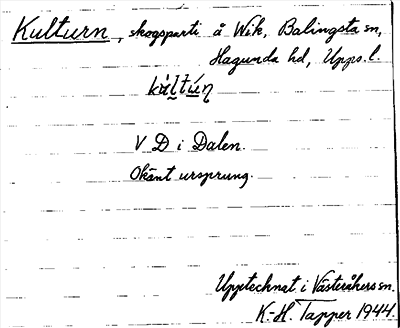 Kulturn, skogsparti å Wik, Balingsta sn,
Hagunda hd, Upps. l.
V D i Dalen.
Okänt ursprung.
Upptecknat i Västeråkers sn.
K-H. Tapper 1944.